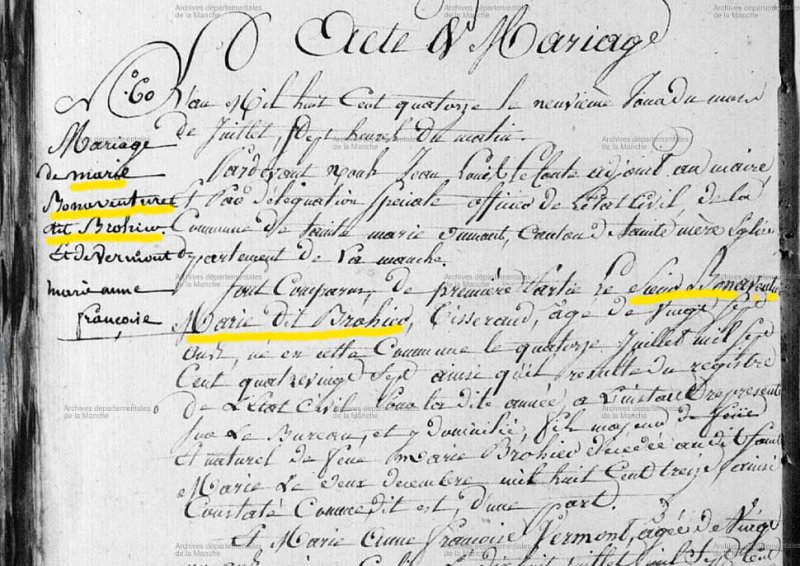 Acte de Mariage
N.º 60
Mariage
de marie
Bonaventure
dit Brohier.
Et de Vermont
marie anne
françoise
L'an Mil huit Cent quatorze le neuvième Jour du mois
de Juillet, Sept heures du matin.
Pardevant nous Jean Louis le Conte adjoint au maire,
Et Par délégation Spéciale officier de L'état Civil de la
Commune de Sainte marie dumont, Canton de Sainte mère Eglise
département de La manche.
Sont Comparus, de première Partie Le Sieur Bonaventure
Marie Dit Brohier, Tisserand, âgé de Vingt Sept
ans, né en cette Commune le quatorze Juillet mil Sept
Cent quatrevingt Sept ainsi qu'il résulte du registre
De L'Etat Civil Pour la dite année, a L'instant représenté
Sur Le Bureau, et y domicilié, fils majeur de
Et naturel de feue Marie Brohier décédée audit Sainte
Marie Le deux decembre mil huit Cent treize, ainsi
Constaté Comme dit est, d'une part.
Et Marie Anne Françoise Vermont, âgée de Vingt
Archives départementales
de la Manche